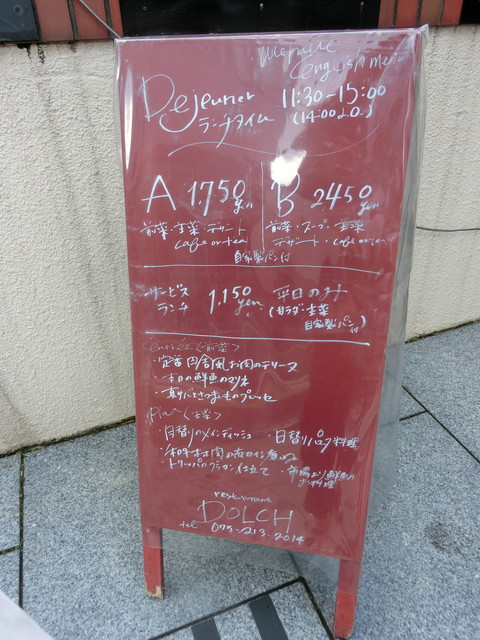 english menu
Dejeuner 11:30~15:00
ランチタイム (14:00 L.O.)
A 1750 yen
前菜・主菜・デザート
cafe or tea
B 2450 yen
前菜・スープ・主菜
デザート・cafe or tea
自家製パン付
サービスランチ 1,150 yen 平日のみ
(サラダ・主菜
自家製パン付)
entrée <前菜>
・定番 田舎風お肉のテリーヌ
・本日の鮮魚のマリネ
・真サバとさつまいものプレッセ
Plat <主菜>
・日替りのメインディッシュ ・日替りパスタ料理
・和牛ホホ肉の赤ワイン煮込み
・トリッパのグラタン仕立て ・市場より鮮魚のお料理
restaurant
DOLCH
tel 075-213-2014